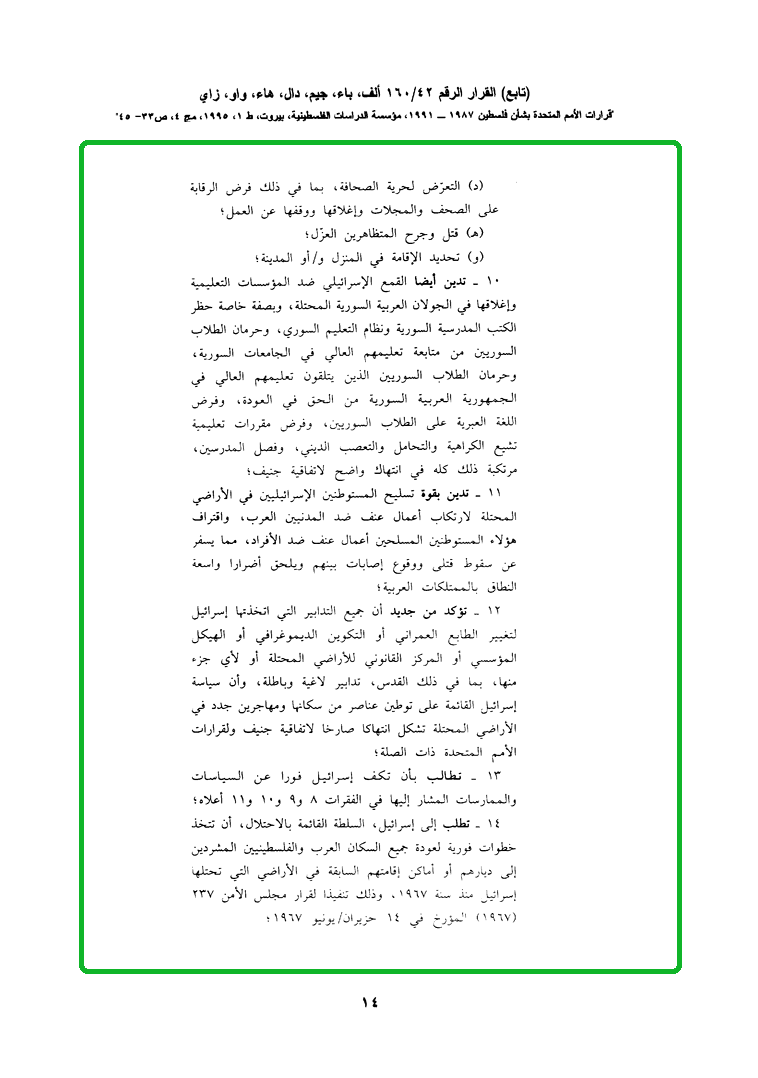 (تابع) القرار الرقم ١٦٠/٤٢ ألف، باء، جيم، دال، هاء، واو، زاي
"قرارات الأمم المتحدة بشأن فلسطين ١٩٨٧ ــ ١٩٩١، مؤسسة الدراسات الفلسطينية، بيروت، ط ١، ١٩٩٥، مج ٤، ص٣٣- ٤٥"
(د) التعرّض لحرية الصحافة، بما في ذلك فرض الرقابة
على الصحف والمجلات وإغلاقها ووقفها عن العمل؛
(هـ) قتل وجرح المتظاهرين العزّل؛
(و) تحديد الإقامة في المنزل و/أو المدينة؛
١٠ ـ تدين أيضا القمع الإسرائيلي ضد المؤسسات التعليمية
وإغلاقها في الجولان العربية السورية المحتلة، وبصفة خاصة حظر
الكتب المدرسية السورية ونظام التعليم السوري، وحرمان الطلاب
السوريين من متابعة تعليمهم العالي في الجامعات السورية،
وحرمان الطلاب السوريين الذين يتلقون تعليمهم العالي في
الجمهورية العربية السورية من الحق في العودة، وفرض
اللغة العبرية على الطلاب السوريين، وفرض مقررات تعليمية
تشيع الكراهية والتحامل والتعصب الديني، وفصل المدرسين،
مرتكبة ذلك كله في انتهاك واضح لاتفاقية جنيف؛
١١ ـ تدين بقوة تسليح المستوطنين الإسرائيليين في الأراضي
المحتلة لارتكاب أعمال عنف ضد المدنيين العرب، واقتراف
هؤلاء المستوطنين المسلحين أعمال عنف ضد الأفراد، مما يسفر
عن سقوط قتلى ووقوع إصابات بينهم ويلحق أضرارا واسعة
النطاق بالممتلكات العربية؛
١٢ ـ تؤكد من جديد أن جميع التدابير التي اتخذتها إسرائيل
لتغيير الطابع العمراني أو التكوين الديموغرافي أو الهيكل
المؤسسي أو المركز القانوني للأراضي المحتلة أو لأي جزء
منها، بما في ذلك القدس، تدابير لاغية وباطلة، وأن سياسة
إسرائيل القائمة على توطين عناصر من سكانها ومهاجرين جدد في
الأراضي المحتلة تشكل انتهاكا صارخا لاتفاقية جنيف ولقرارات
الأمم المتحدة ذات الصلة؛
١٣ ـ تطالب بأن تكف إسرائيل فورا عن السياسات
والممارسات المشار إليها في الفقرات ٨ و٩ و١٠ و١١ أعلاه؛
١٤ ـ تطلب إلى إسرائيل، السلطة القائمة بالاحتلال، أن تتخذ
خطوات فورية لعودة جميع السكان العرب والفلسطينيين المشردين
إلى ديارهم أو أماكن إقامتهم السابقة في الأراضي التي تحتلها
إسرائيل منذ سنة ١٩٦٧، وذلك تنفيذا لقرار مجلس الأمن ٢٣٧
(١٩٦٧) المؤرخ في ١٤ حزيران/يونيو ١٩٦٧؛
١٤